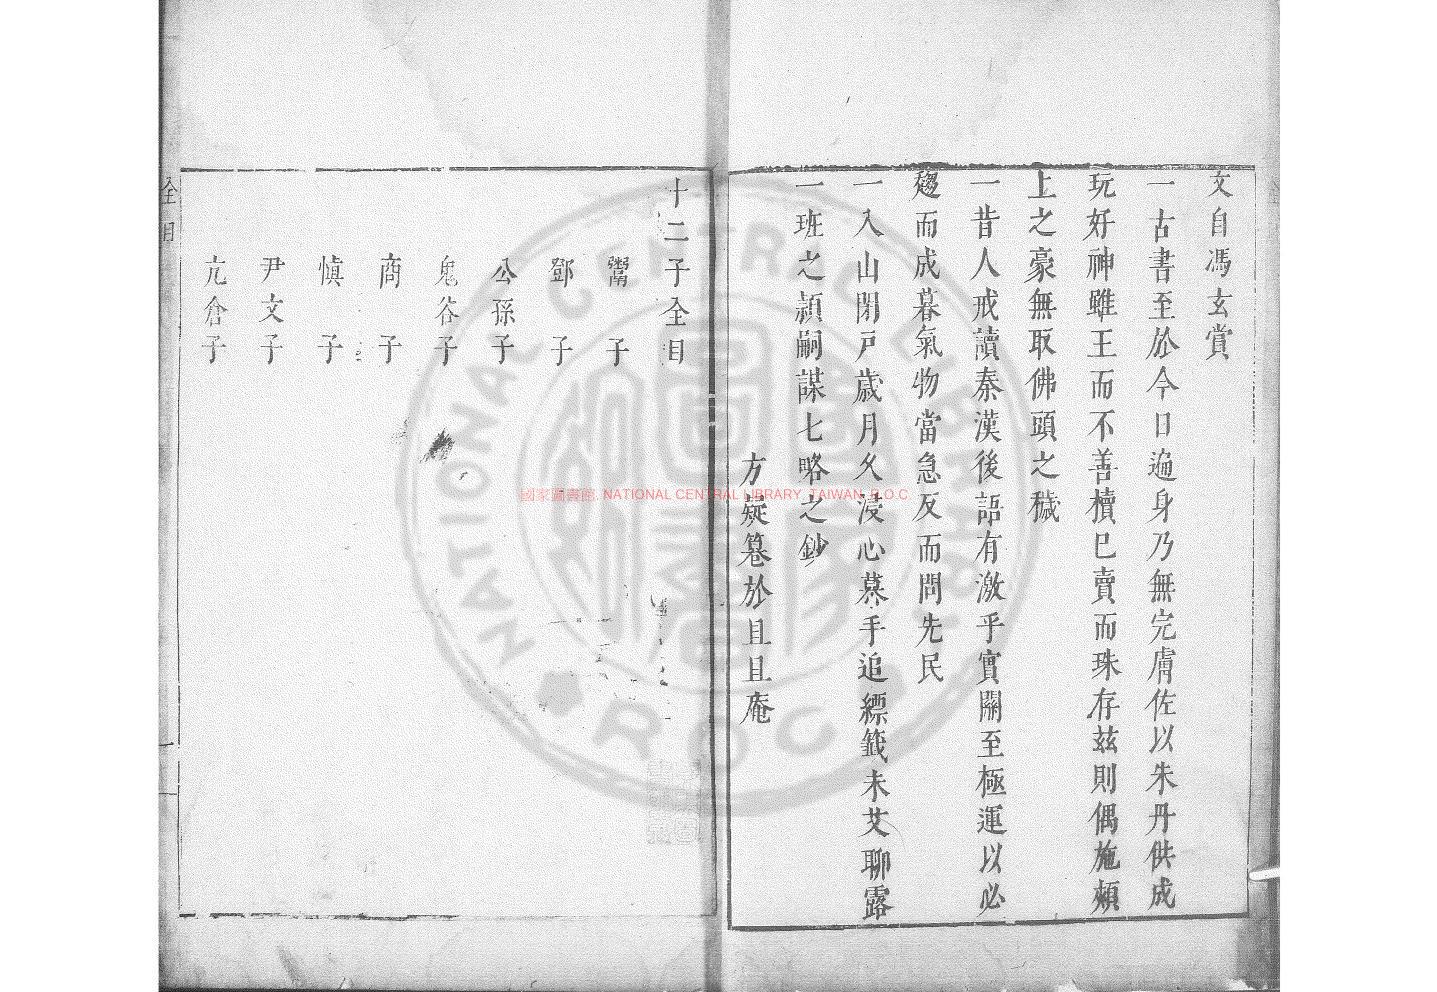 文自馮玄賞
一古書至於今日遍身乃無完膚佐以朱丹供成
玩好神雖王而不善櫝已賣而珠存茲則偶施頰
上之豪無取佛頭之穢
一昔人戒讀秦漢後語有激乎實關至極運以必
趨而成暮氣物當急反而問先民
一入山閉戸歲月久浸心慕手追縹籤未艾聊露
一班之穎嗣謀七略之鈔
方疑纂於且且庵
十二子全目
鬻子
鄧子
公孫子
鬼谷子
商子
慎子
尹文子
亢倉子
全目
一
國家圖書館, NATIONAL CENTRAL LIBRARY, TAIWAN, R.O.C.
NATIONAL CENTRAL LIBRARY
R.O.C.